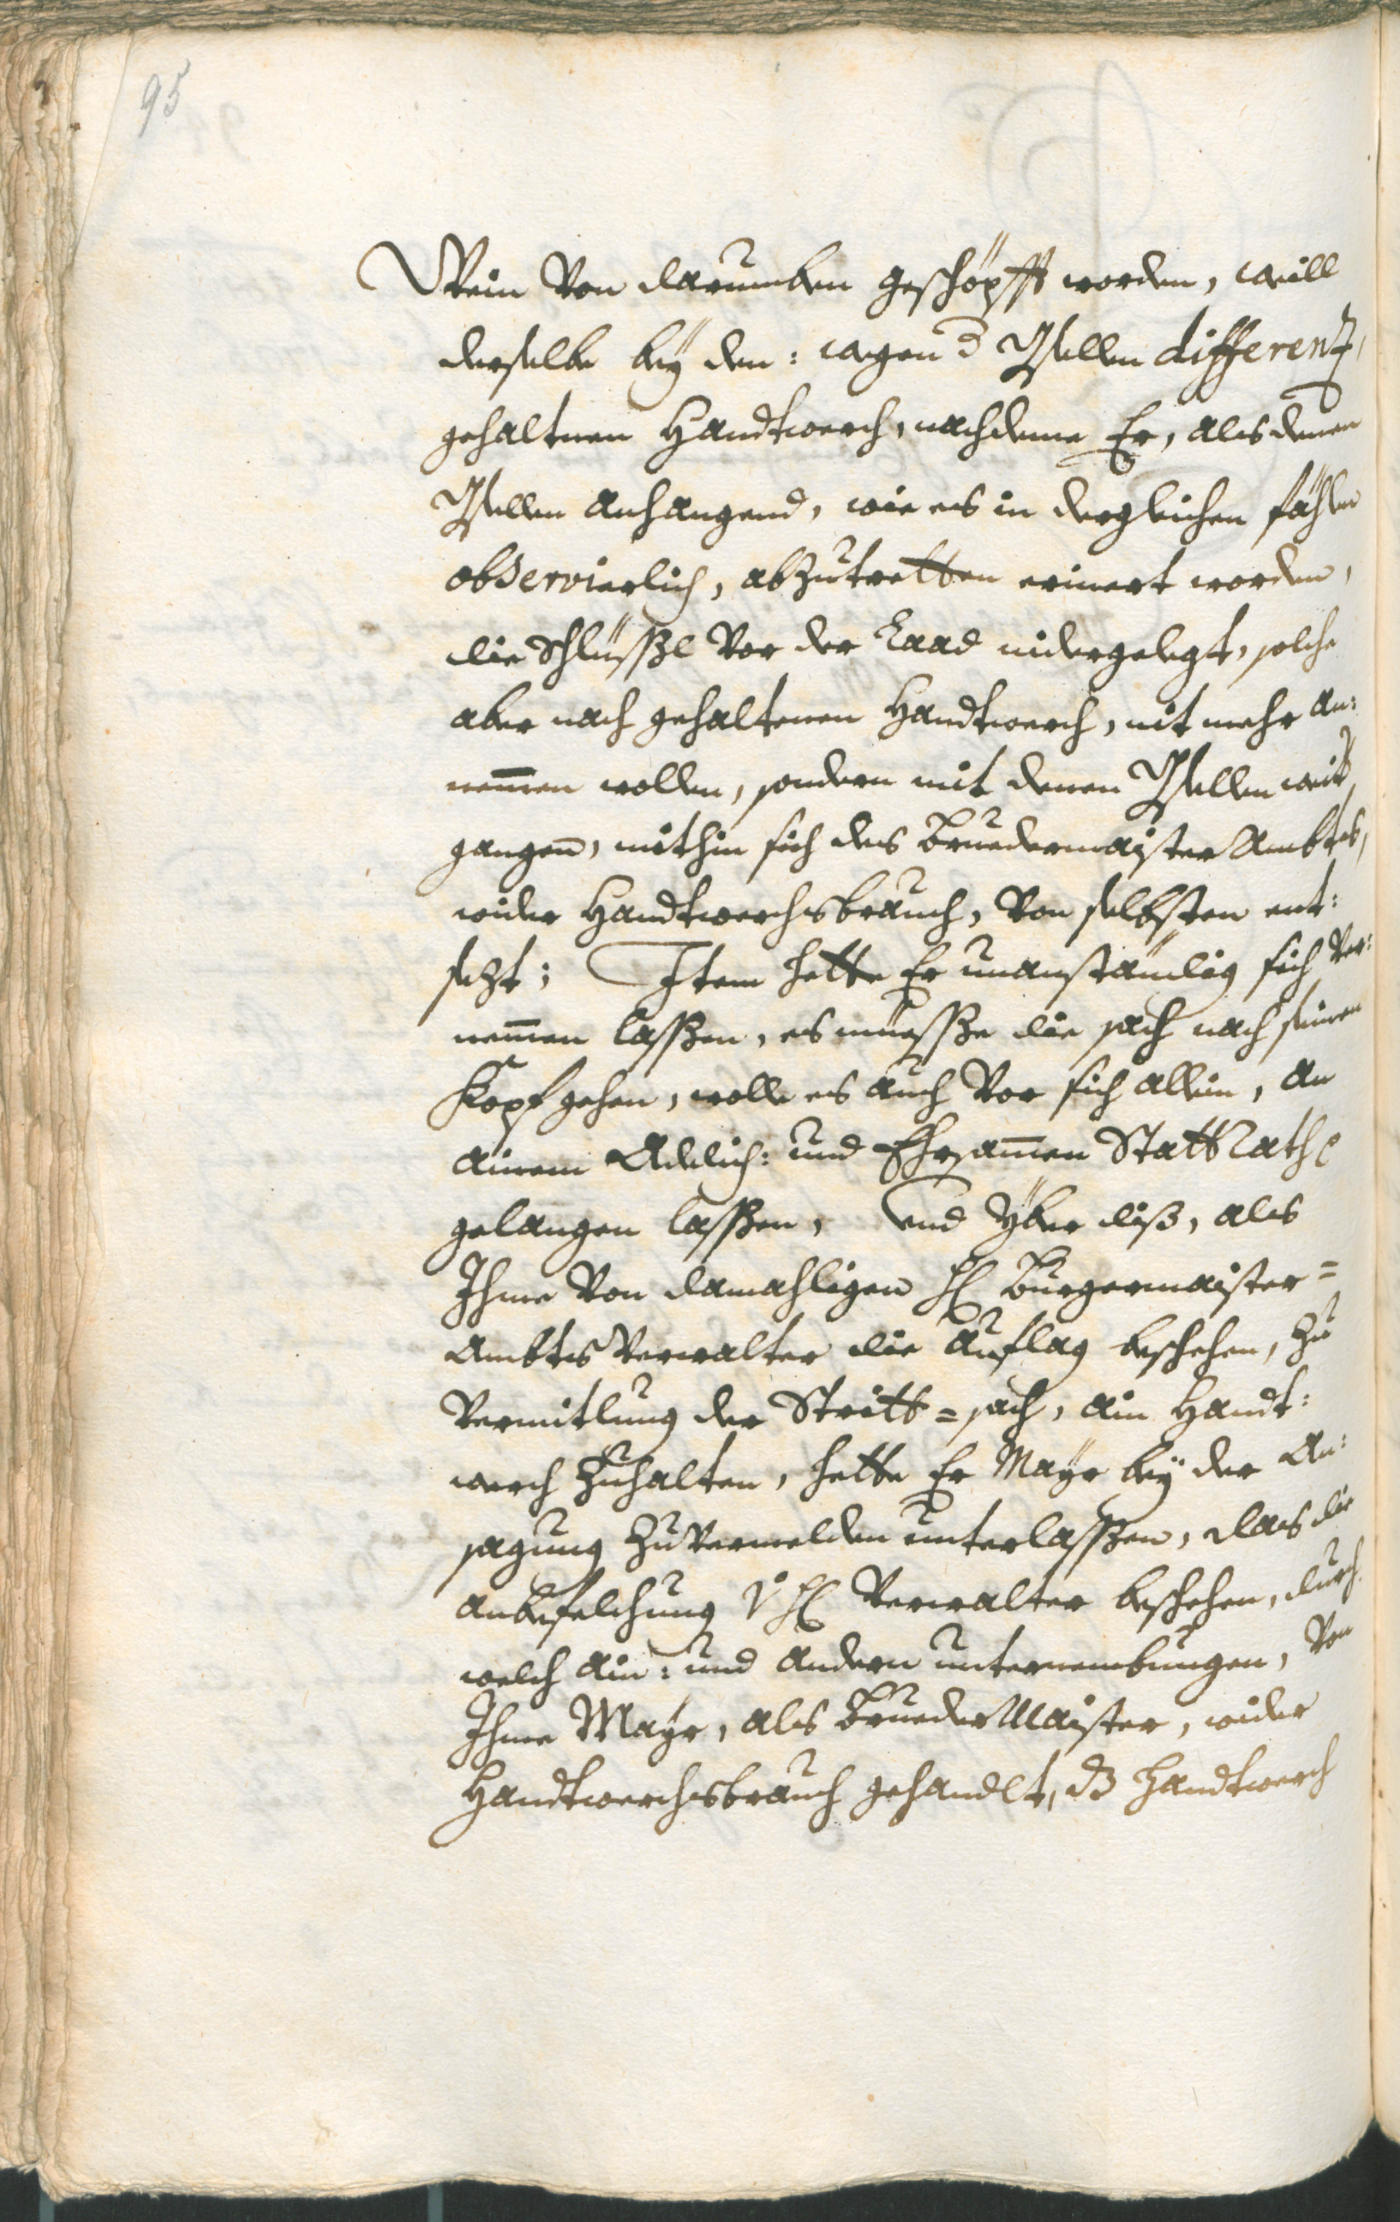 95
Wein Von darumben geschöpfft worden, weill
derselbe bëy den: wegen d Gsellen differenz,
gehaltnen Handtwerch, nachdeme Er, als denen
Gsellen anhangend, wie es in dergleichen fählen
observierlich, abzutretten erinert worden,
die Schlüssl Vor der Laad nidergelegt, solche
aber nach gehaltenen Handtwerch, nit mehr an:
nemen wollen, sondern mit denen Gsellen weck
gangen, mithin sich des Bruedermaister Ambts,
wider Handtwerchsbrauch, Von selbsten ent:
sezt; Item hette Er unanständig sich Ver:
nemen lassen, es müesse die sach nach seinen
Kopf gehen, wolle es auch Vor sich allein, an
ainem Adelich: und Ehrsamen StattRath
gelangen lassen, Und über diß, als
Ihme Von damahligen H Burgermaister=
Ambts Verwalter die Auflag beschehen, zu
Vermitlung der Stritt=sach, ain Handt:
werch zuhalten, hette Er Mayr beÿ der An:
sagung zuvermelden unterlassen, das die
anbefelchung v H Verwalter beschehen, durch
welch ain: und andern unternembungen, Von
Ihme Mayr, als BruederMaister, wider
Handtwerchsbrauch gehandlt, dz Handtwerch